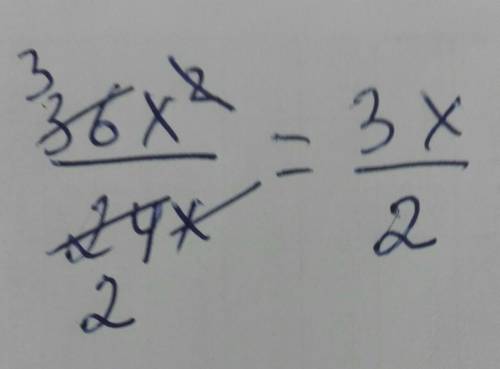 3
36x² / 24x = 3x / 2
2